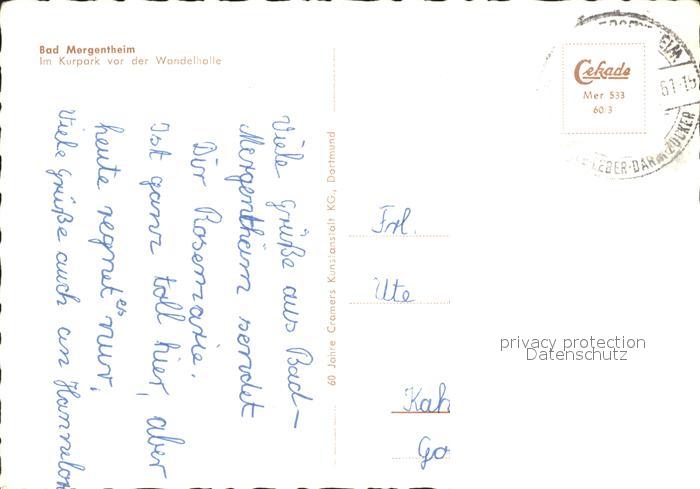 Bad Mergentheim
Im Kurpark vor der Wandelhalle
Viele Grüße aus Bad-
Mergentheim sendet
Dir Rosemarie.
Ist ganz toll hier, aber
heute regnet es nur.
Viele Grüße auch an Hannelor
60 Jahre Cramers Kunstanstalt KG., Dortmund
Cekade
Mer 533
60/3
61-15
LEBER-DARM-ZUCKER
Frl.
Ute
Kah
Go
privacy protection
Datenschutz